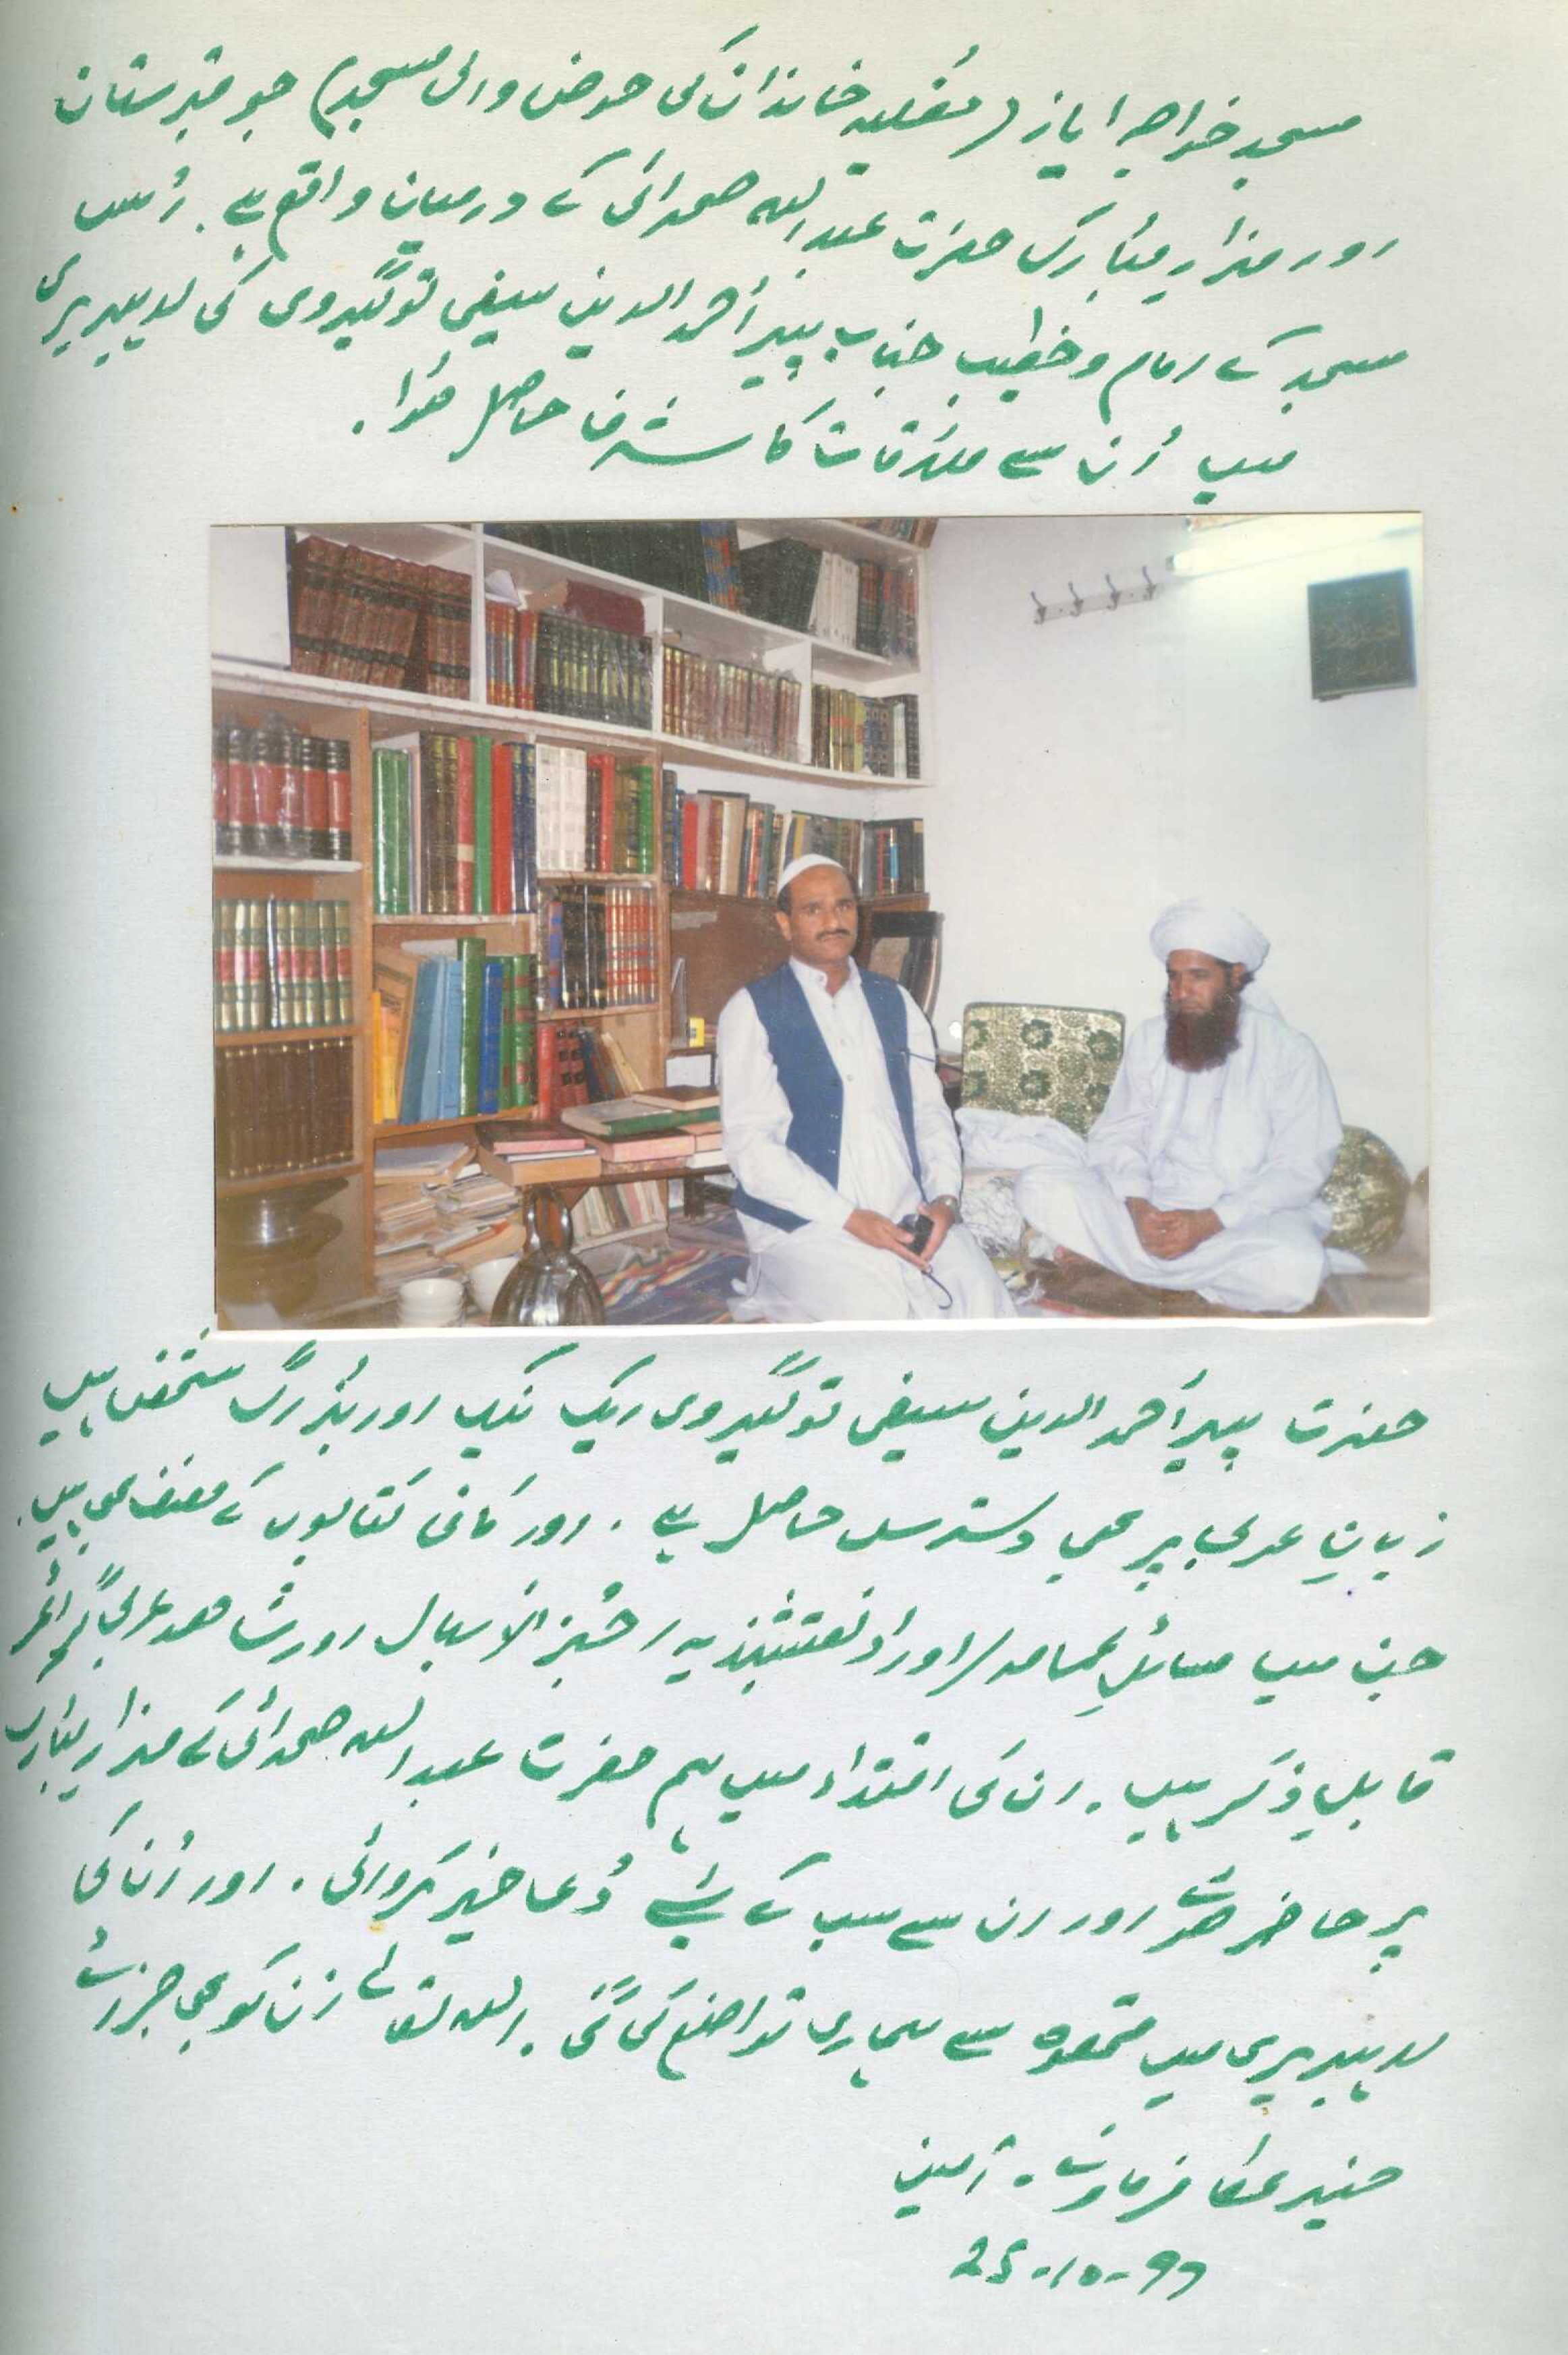 مسجد خواجہ ایاز (مغلیہ خاندان کی حوض والی مسجد) جو قبرستان
اور مزار مبارک حضرت عبداللہ صحرائی کے درمیان واقع ہے۔ اُس
مسجد کے امام و خطیب جناب پیر احمد الدین سیفی توگیروی کی لائبریری
میں اُن سے ملاقات کا شرف حاصل ہوا۔
حضرت پیر احمد الدین سیفی توگیروی ایک نیک اور بزرگ شخص ہیں
زبانِ عربی پر بھی دسترس حاصل ہے۔ اور کافی کتابوں کے مصنف بھی ہیں۔
جن میں مسائلِ اوراد نقشبندیہ، الاسبال اور شاھد عربی گرائمر
قابلِ ذکر ہیں۔ ان کی اقتداء میں ہم حضرت عبداللہ صحرائی کے مزار مبارک
پر حاضر ھوئے اور ان سے سب کے لئے دُعا خیر کروائی۔ اور اُن کی
لائبریری میں قہوہ سے ہماری تواضع کی گئی۔ اللہ تعالےٰ اُن کو بھی جزائے
خیر عطا فرمائے۔ آمین
25-10-99